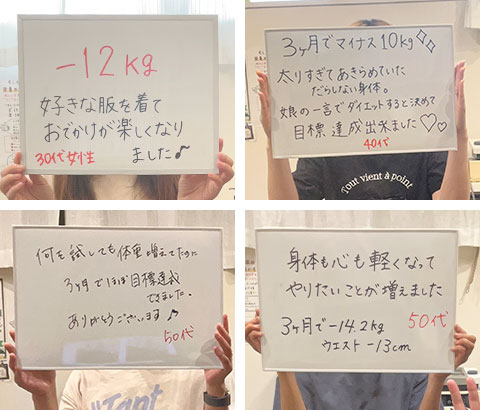 -12kg
好きな服を着て
おでかけが楽しくなり
ました♪
30代女性
3ヶ月でマイナス10kg
太りすぎてあきらめていた
だらしない身体。
娘の一言でダイエットすると決めて
目標達成出来ました♡♡
40代
Tout vient à point
何を試しても体重増えてたのに
3ヶ月でほぼ目標達成
できました。
ありがとうございます♪
50代
身体も心も軽くなって
やりたいことが増えました
3ヶ月で-14.2kg
ウエスト-13cm
50代